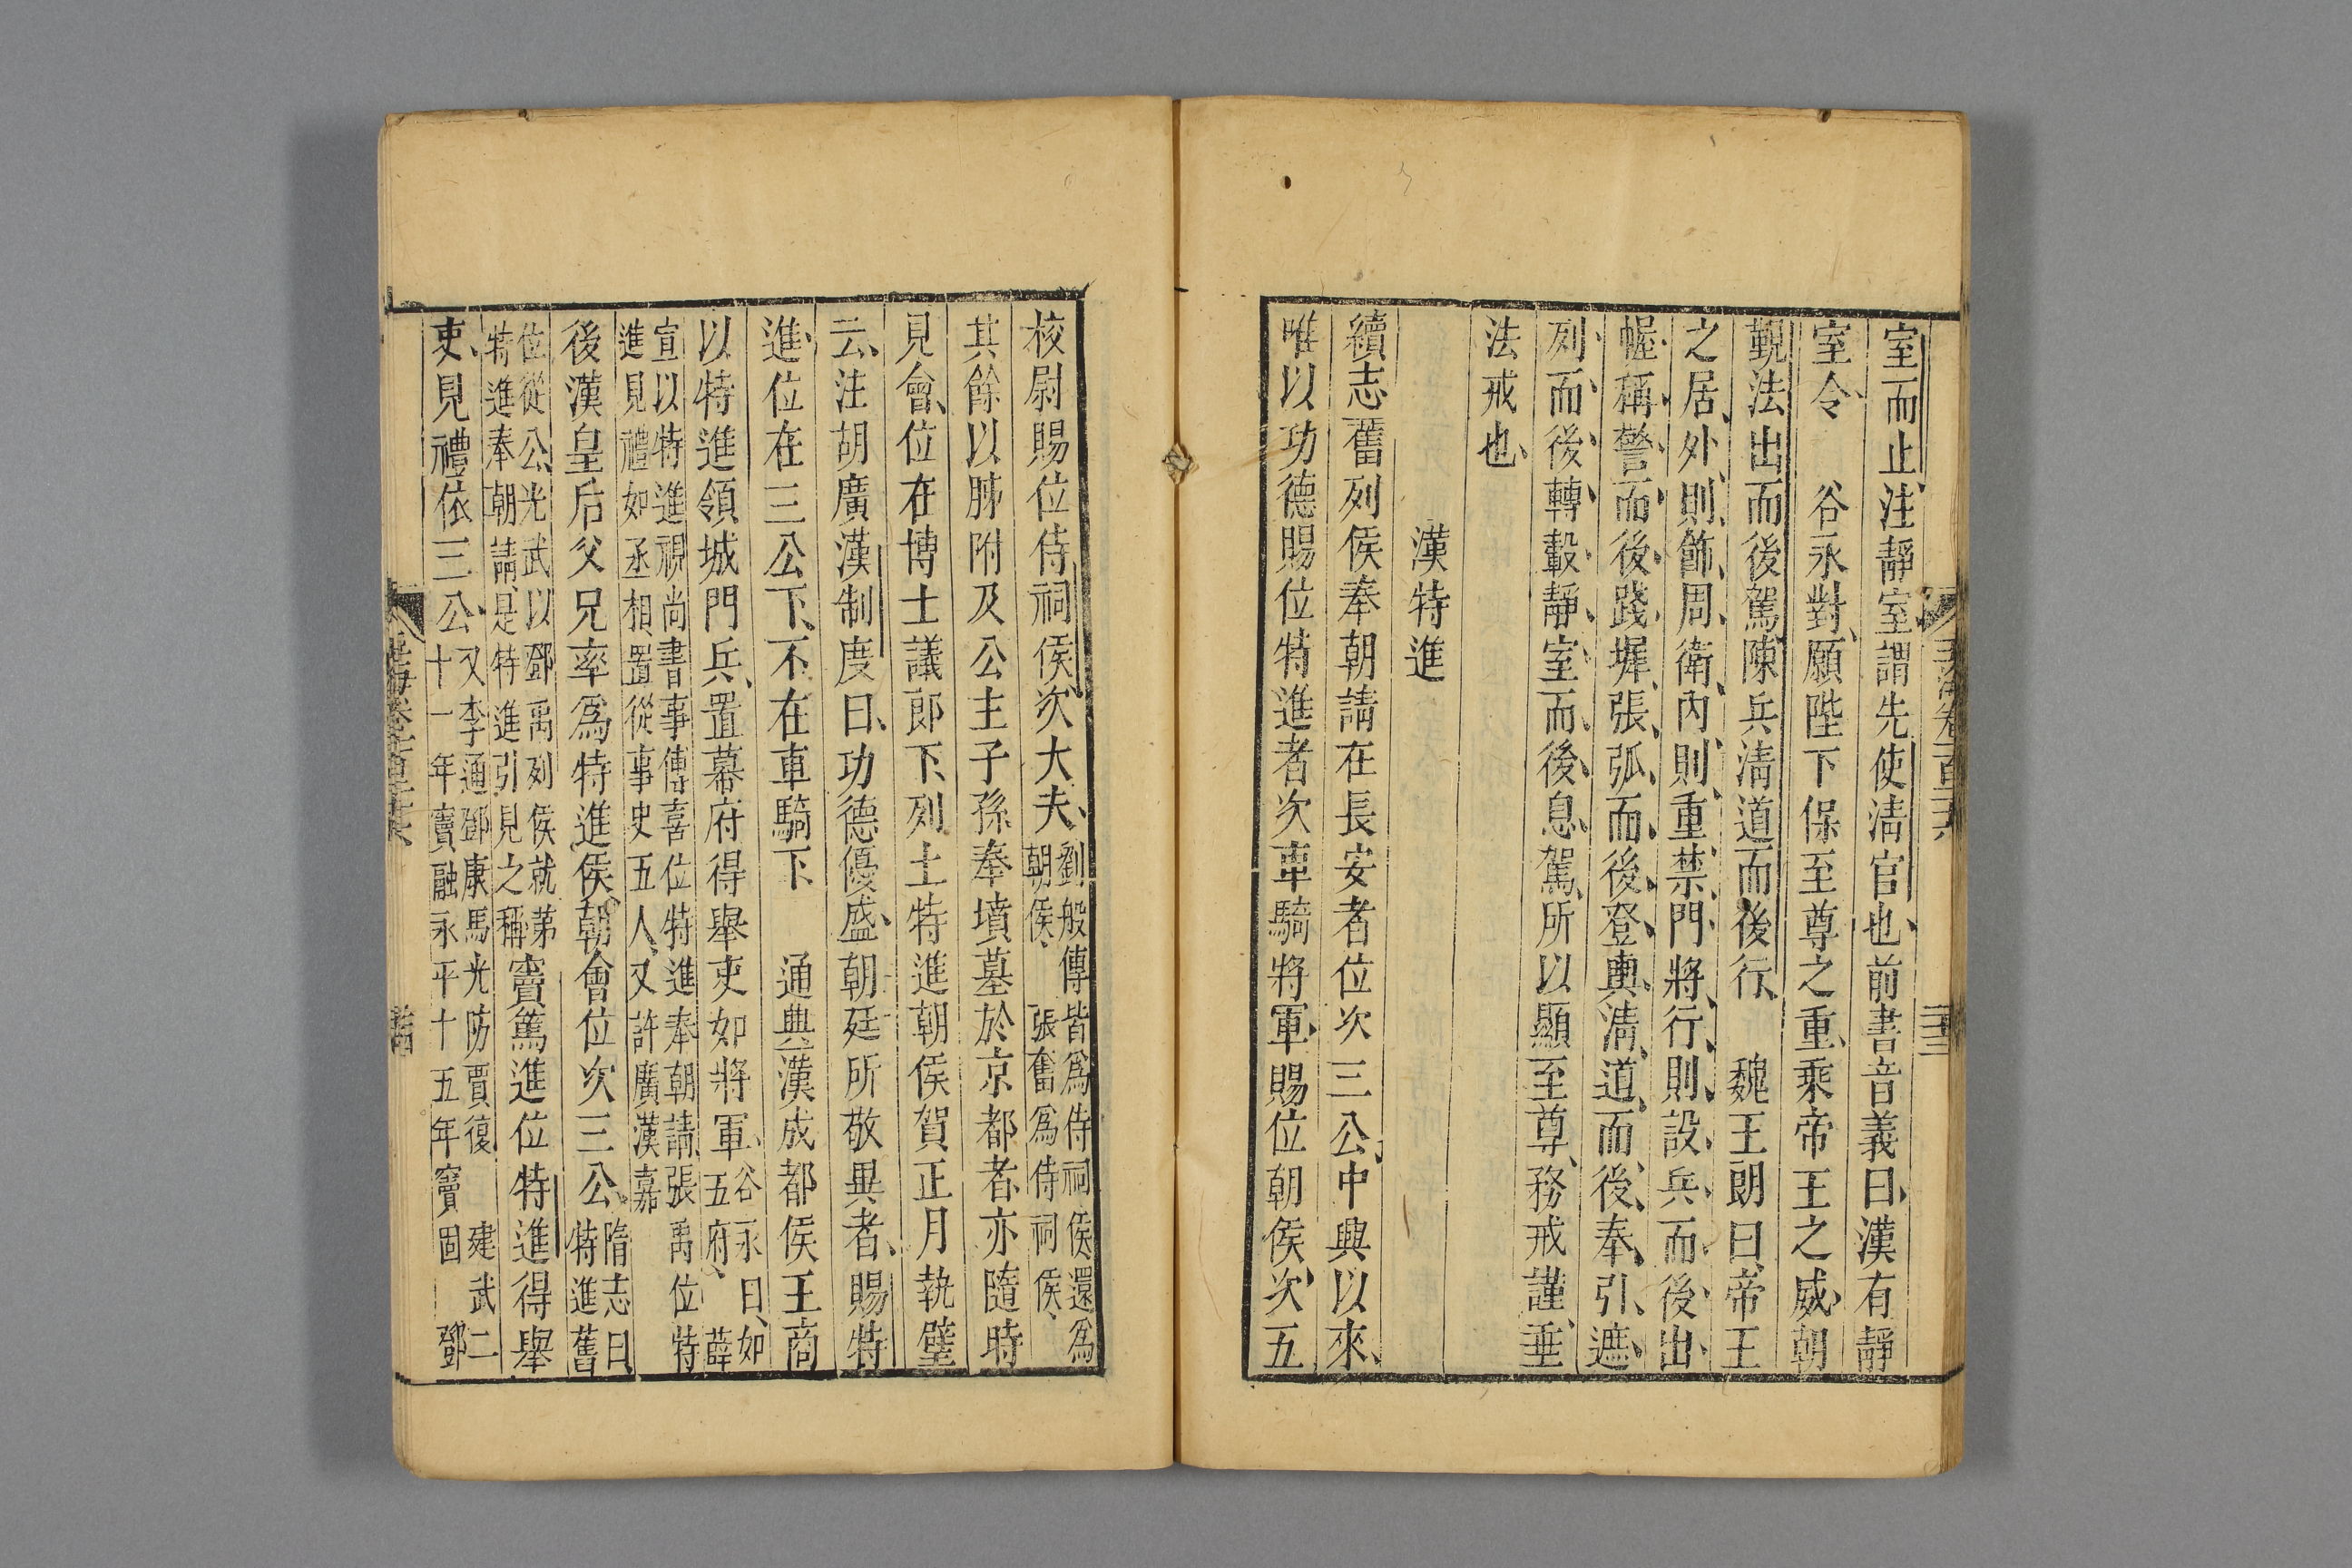 玉海卷一百三十六
二十三
室而止注靜室謂先使淸官也前書音義曰漢有靜
室令 谷永對願陛下保至尊之重乘帝王之威朝
覲法出而後駕陳兵淸道而後行 魏王朗曰帝王
之居外則飾周衛內則重禁門將行則設兵而後出
幄稱警而後踐墀張弧而後登輿淸道而後奉引遮
列而後轉轂靜室而後息駕所以顯至尊務戒謹垂
法戒也
漢特進
續志舊列侯奉朝請在長安者位次三公中興以來
唯以功德賜位特進者次車騎將軍賜位朝侯次五
校尉賜位侍祠侯次大夫劉般傳皆爲侍祠侯還爲朝侯張奮爲侍祠侯
其餘以肺附及公主子孫奉墳墓於京都者亦隨時
見會位在博士議郎下列土特進朝侯賀正月執璧
云注胡廣漢制度曰功德優盛朝廷所敬異者賜特
進位在三公下不在車騎下 通典漢成都侯王商
以特進領城門兵置幕府得舉吏如將軍谷永曰如五府薛
宣以特進視尚書事傳喜位特進奉朝請張禹位特進見禮如丞相置從事史五人又許廣漢嘉
後漢皇后父兄率爲特進侯朝會位次三公隋志曰特進舊
位從公光武以鄧禹列侯就第特進奉朝請是特進引見之稱竇篤進位特進得舉
吏見禮依三公又李通鄧康馬光防賈復建武二十一年竇融永平十五年竇固鄧